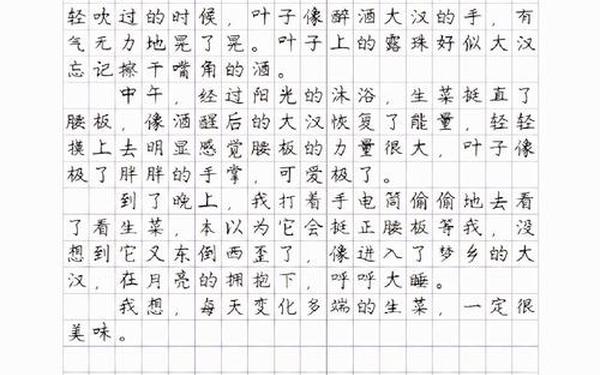 轻吹过的时候，叶子像醉酒大汉的手，有
气无力地晃了晃。叶子上的露珠好似大汉
忘记擦干嘴角的酒。
中午，经过阳光的沐浴，生菜挺直了
腰板，像酒醒后的大汉恢复了能量，轻轻
摸上去明显感觉腰板的力量很大，叶子像
极了胖胖的手掌，可爱极了。
到了晚上，我打着手电筒偷偷地去看
了看生菜，本以为它会挺正腰板等我，没
想到它又东倒西歪了，像进入了梦乡的大
汉，在月亮的拥抱下，呼呼大睡。
我想，每天变化多端的生菜，一定很
美味。